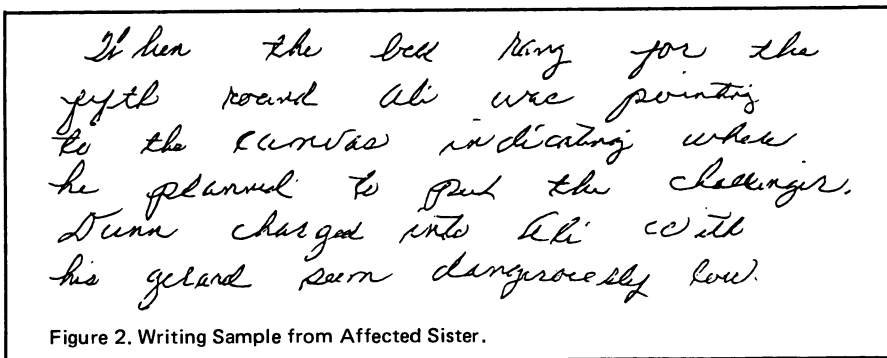 When the bell rang for the
fifth round Ali was pointing
to the canvas indicating where
he planned to put the challenger.
Dunn charged into Ali with
his guard seem dangerously low.
Figure 2. Writing Sample from Affected Sister.